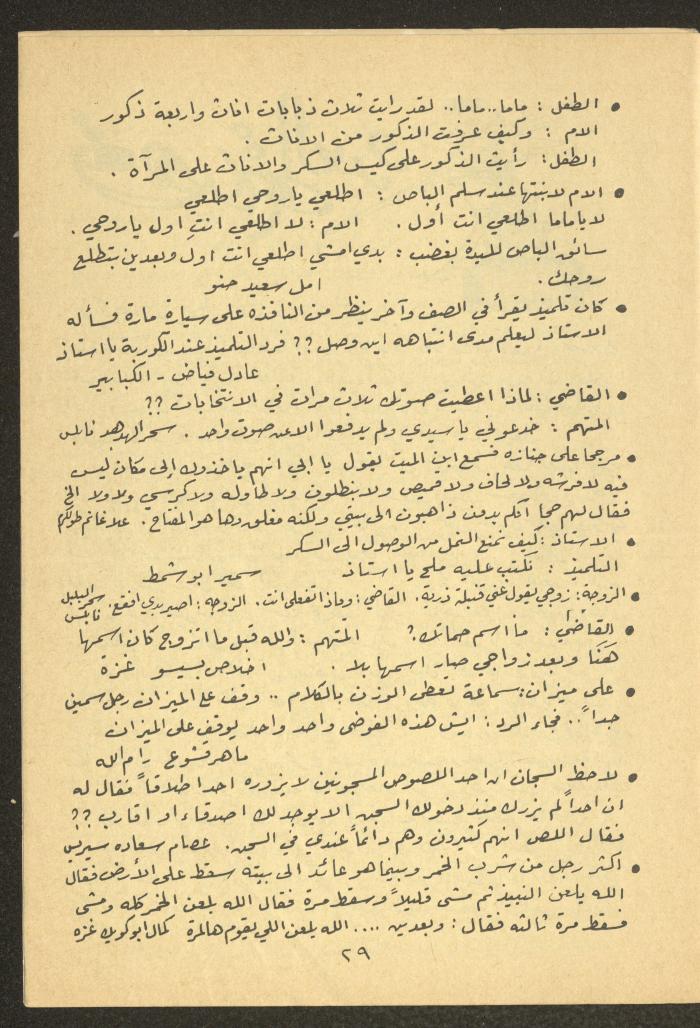 • الطفل : ماما.. ماما.. لقد رايت ثلاث ذبابات اناث واربعة ذكور
الام : وكيف عرفت الذكور من الاناث .
الطفل : رأيت الذكور على كيس السكر والاناث على المرآة .
• الام لابنتها عند سلم الباص : اطلعي ياروحي اطلعي
لا ياماما اطلعي انت أول . الام : لا اطلعي انتِ اول ياروحي .
سائق الباص للسيدة بغضب : بدي امشي اطلعي انت اول وبعدين بتطلع
روحك . امل سعيد حنو
• كان تلميذ يقرأ في الصف وآخر ينظر من النافذه على سيارة مارة فسأله
الاستاذ ليعلم مدى انتباهه اين وصل ؟؟ فرد التلميذ عند الكوربة يا استاذ
عادل فياض - الكبابير
• القاضي : لماذا اعطيت صوتك ثلاث مرات في الانتخابات ؟؟
المتهم : خدعوني يا سيدي ولم يدفعوا الا عن صوت واحد . سحر الهدهد نابلس
• مر جحا على جنازه فسمع ابن الميت يقول يا ابي انهم ياخذوك إلى مكان ليس
فيه لا فرشه ولا لحاف ولا قميص ولا بنطلون ولا طاوله ولا كرسي ولا ولا الخ
فقال لهم جحا أكم بدون ذاهبون الى بيتي ولكنه مغلق وها هو المفتاح . علا غانم طولكرم
• الاستاذ : كيف تمنع النمل من الوصول الى السكر
التلميذ : نكتب عليه ملح يا استاذ سمير ابو شمط
• الزوجة : زوجي يقول عني قنبلة ذرية . القاضي : وماذا تفعلي انت . الزوجه : اصير بدي افقع . سحر البلبل نابلس
• القاضي : ما اسم حماتك ؟ المتهم : والله قبل ما اتزوج كان اسمها
هَنَا وبعد زواجي صار اسمها بلا . اخلاص بسيسو غزة
• على ميزان : سماعة تعطي الوزن بالكلام .. وقف على الميزان رجل سمين
جداً .. فجاء الرد : ايش هذه الفوضى واحد واحد يوقف على الميزان
ماهر قشوع رام الله
• لاحظ السجان ان احد اللصوص المسجونين لا يزوره احد اطلاقاً فقال له
ان احداً لم يزرك منذ دخولك السجن الا يوجد لك اصدقاء او اقارب ؟؟
فقال اللص انهم كثيرون وهم دائماً عندي في السجن . عصام سعاده سيريس
• اكثر رجل من شرب الخمر وبينما هو عائد الى بيته سقط على الأرض فقال
الله يلعن النبيذ ثم مشى قليلاً وسقط مرة فقال الله يلعن الخمر كله ومشى
فسقط مرة ثالثه فقال : وبعدين .... الله يلعن اللي يقوم هالمرة كمال ابو كويك غزه
٢٩